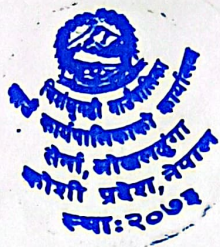 चिशंखुगढी गाउँपालिका
गाउँ कार्यपालिकाको कार्यालय
सेर्ना, ओखलढुंगा
कोशी प्रदेश, नेपाल
स्था: २०७३